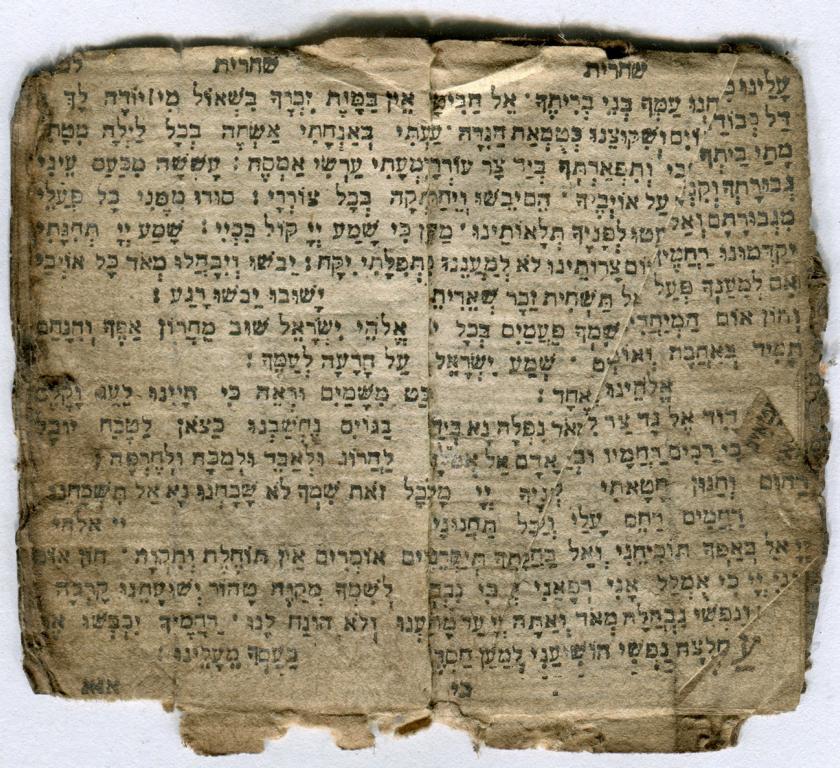 שחרית
עלינו חננו עמך בני בריתך׃ אל הביט
דל כבודנו ושקוצנו כטמאת הנדה׃ עד
מתי בשבי ותפארתך ביד צר עוררה
גבורתך וקנאתך על אויביך הם יבשו ויחתו
מגבורתם ואל ימעטו לפניך תלאותינו׃
יקדמונו רחמיך צרותינו לא למעננו
אם למענך פעל ואל תשחית זכר שארית
וחון אום המיחדים שמך פעמים בכל יום
תמיד באהבה ואומרים שמע ישראל
אלהינו אחד׃
דוד אל גד צר לי מאד נפלה נא ביד
כי רבים רחמיו וביד אדם אל אפלה׃
רחום וחנון חטאתי לפניך יי מלא
רחמים רחם עלי וקבל תחנוני׃
יי אל באפך תוכיחני ואל בחמתך תיסרני׃
חנני יי כי אומלל אני רפאני כי נבהלו
ונפשי נבהלה מאד ואתה יי עד מתי׃
חלצה נפשי הושיעני למען חסדך
כי
שחרית
אין במות זכרך בשאול מי יודה לך׃
יגעתי באנחתי אשחה בכל לילה מטתי
בדמעתי ערשי אמסה׃ עששה מכעס עיני
עתקה בכל צוררי׃ סורו ממני כל פעלי
און כי שמע יי קול בכיי׃ שמע יי תחנתי
יי תפלתי יקח׃ יבשו ויבהלו מאד כל אויבי
ישובו יבשו רגע׃
יי אלהי ישראל שוב מחרון אפך והנחם
על הרעה לעמך׃
הבט משמים וראה כי היינו לעג וקלס
בגוים נחשבנו כצאן לטבח יובל
להרוג ולאבד ולמכה ולחרפה׃
ובכל זאת שמך לא שכחנו נא אל תשכחנו׃
יי אלהי
זרים אומרים אין תוחלת ותקוה׃ חון אום
לשמך מקוה טהור ישועתנו קרבה
יגענו ולא הונח לנו׃ רחמיך יכבשו את
כעסך מעלינו׃
אנא